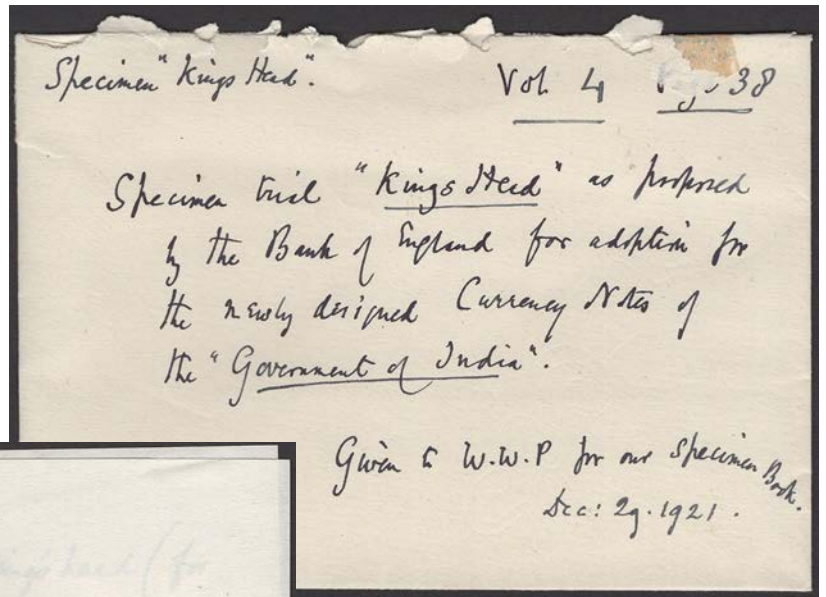 Specimen "Kings Head".
Vol. 4 Page 38
Specimen trial "Kings Head" as proposed
by the Bank of England for adoption for
the newly designed Currency Notes of
the "Government of India".
Given to W.W.P for our Specimen Book.
Dec: 29. 1921.
king's head (for